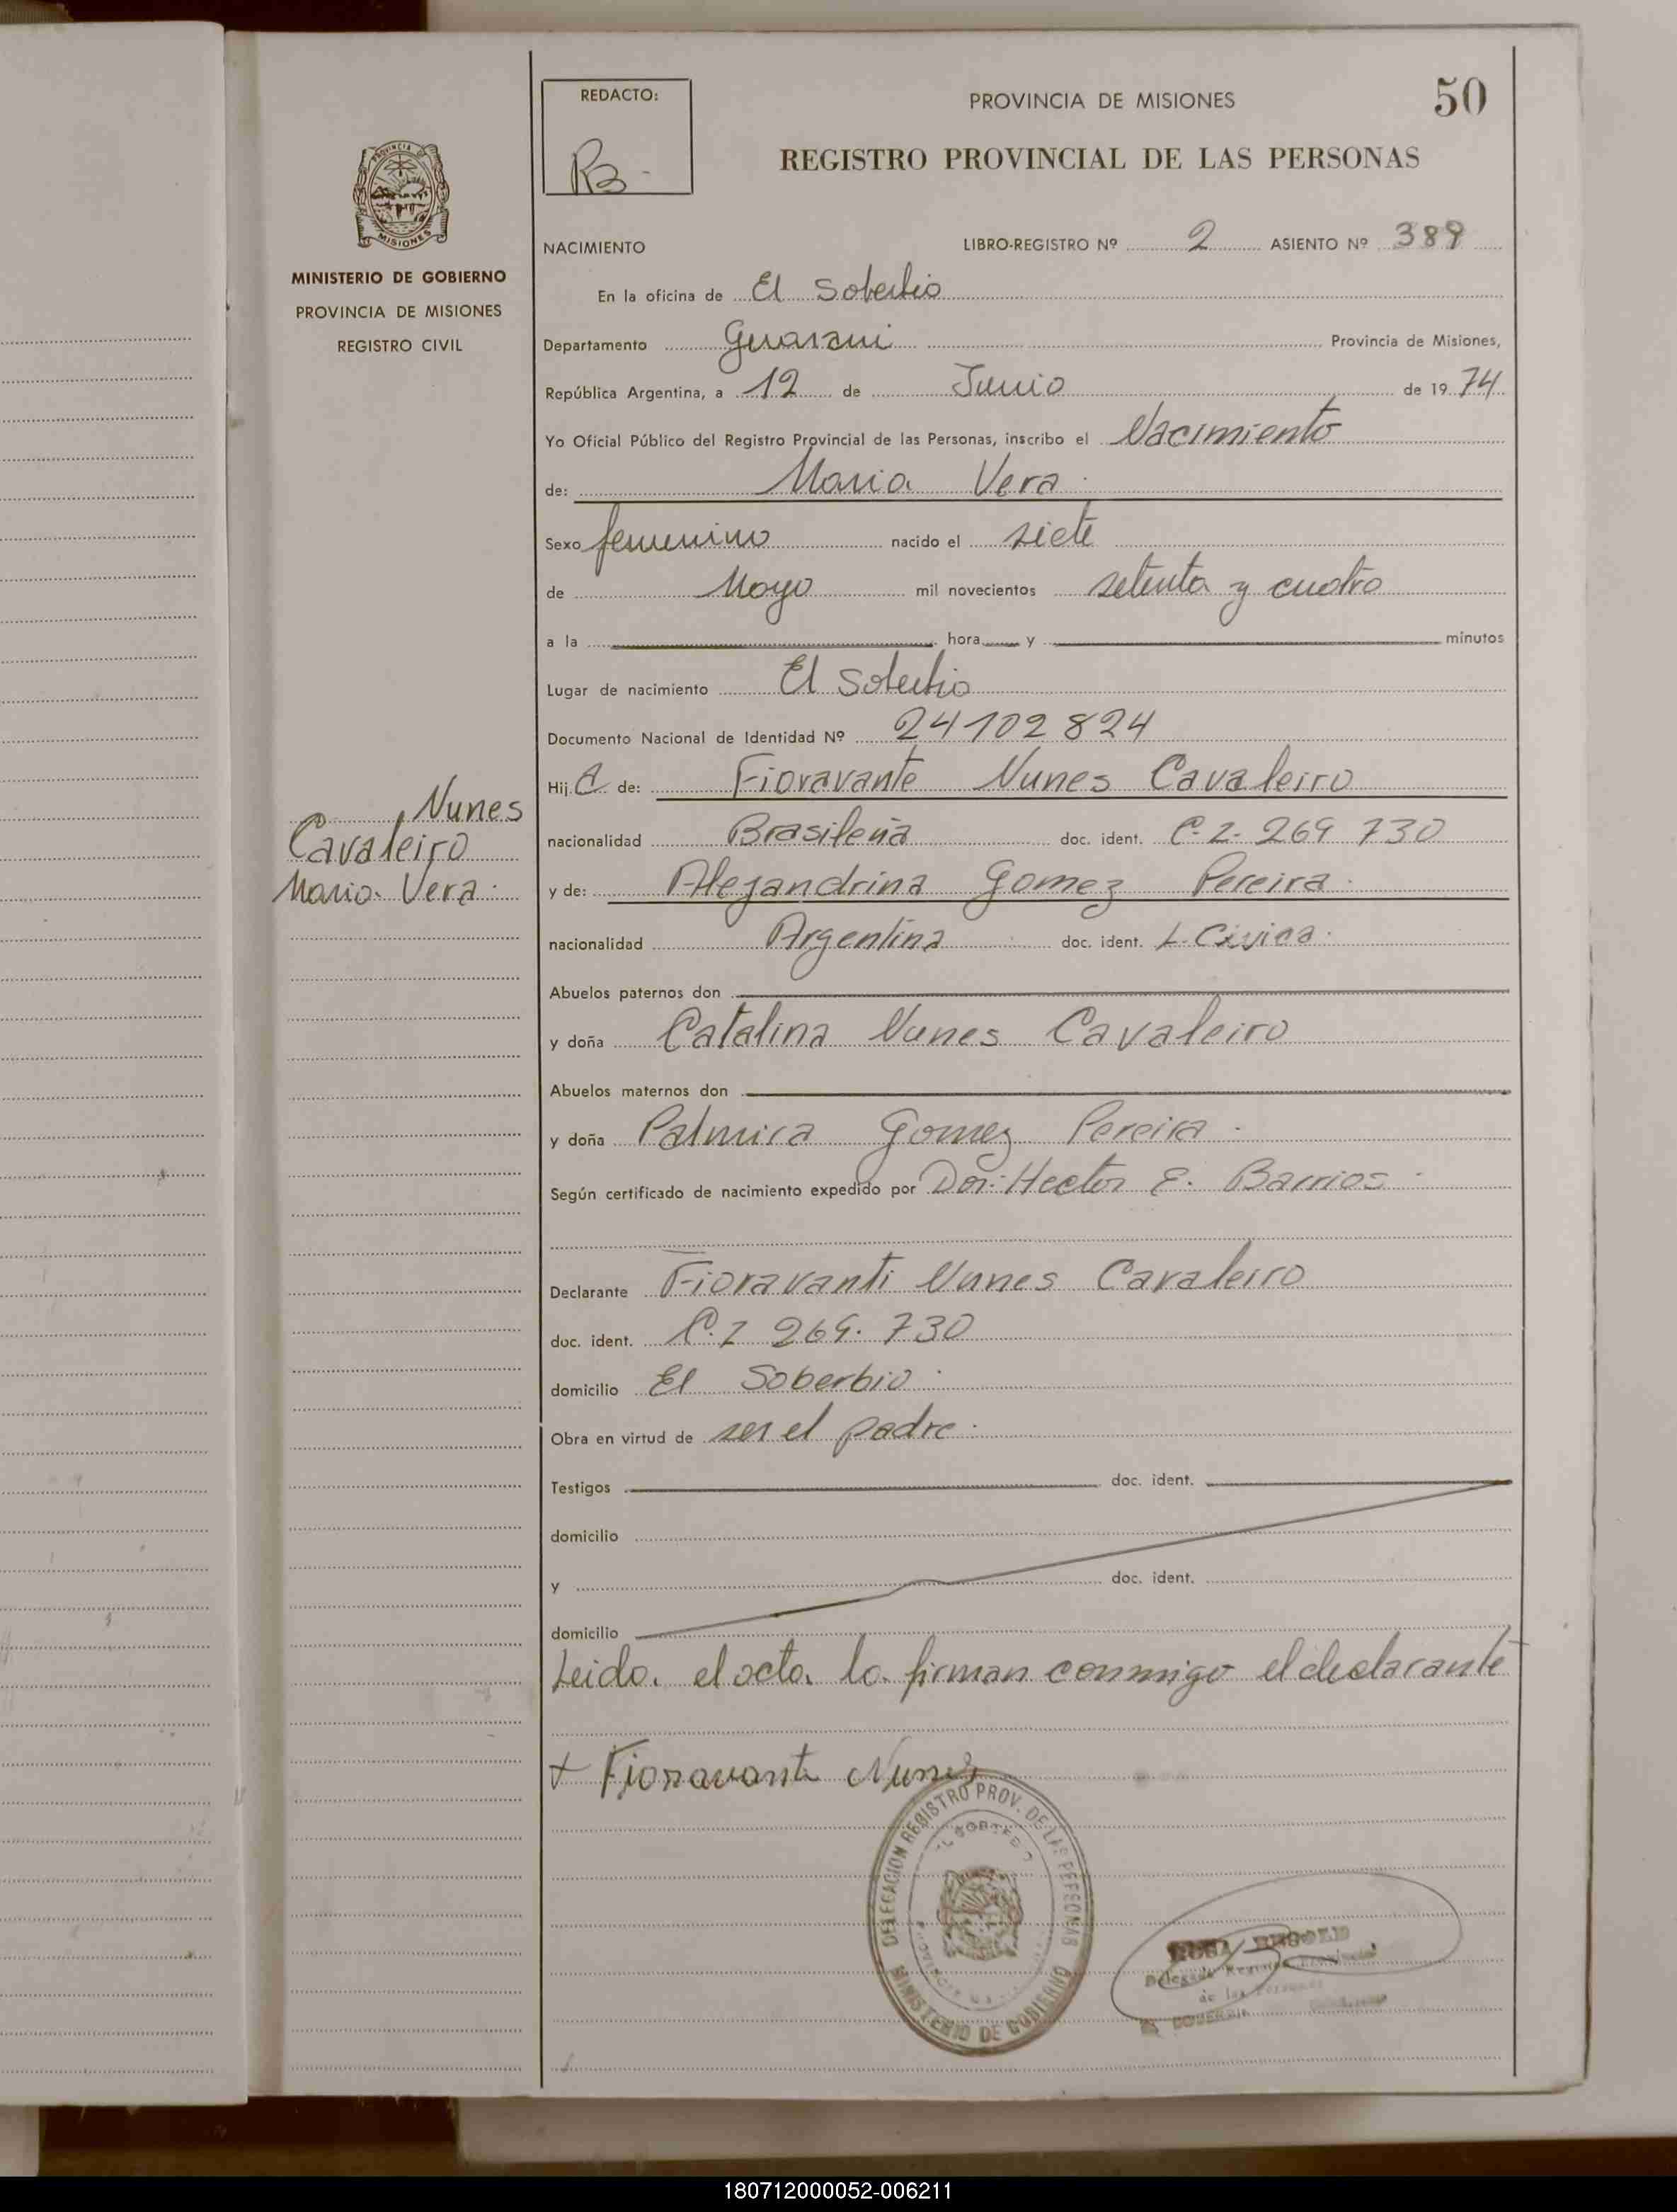 50
REDACTO:
PROVINCIA DE MISIONES
REGISTRO PROVINCIAL DE LAS PERSONAS
PROVINCIA DE
MISIONES
MINISTERIO DE GOBIERNO
PROVINCIA DE MISIONES
REGISTRO CIVIL
NACIMIENTO LIBRO-REGISTRO Nº 2 ASIENTO Nº 389
En la oficina de El Soberbio
Departamento Guarani Provincia de Misiones,
República Argentina, a 12 de Junio de 1974
Yo Oficial Público del Registro Provincial de las Personas, inscribo el Nacimiento
de: Maria Vera.
Sexo femenino nacido el siete
de Mayo mil novecientos setenta y cuatro
a la hora y minutos
Lugar de nacimiento El Soberbio
Documento Nacional de Identidad Nº 24102824
Hij a de: Fioravante Nunes Cavaleiro
nacionalidad Brasileña doc. ident. C.I. 269 730
y de: Alejandrina Gomez Pereira.
nacionalidad Argentina doc. ident. L. Civica.
Abuelos paternos don
y doña Catalina Nunes Cavaleiro
Abuelos maternos don
y doña Palmira Gomez Pereira.
Según certificado de nacimiento expedido por Dor. Hector E. Barrios.
Declarante Fioravanti Nunes Cavaleiro
doc. ident. C.I 269.730
domicilio El Soberbio.
Obra en virtud de ser el padre.
Testigos doc. ident.
domicilio
y doc. ident.
domicilio
Leida el acta la firman conmigo el declarante
+ Fioravante Nunes
Nunes
Cavaleiro
Maria Vera.
DELEGACION REGISTRO PROV. DE LAS PERSONAS
MINISTERIO DE GOBIERNO
180712000052-006211